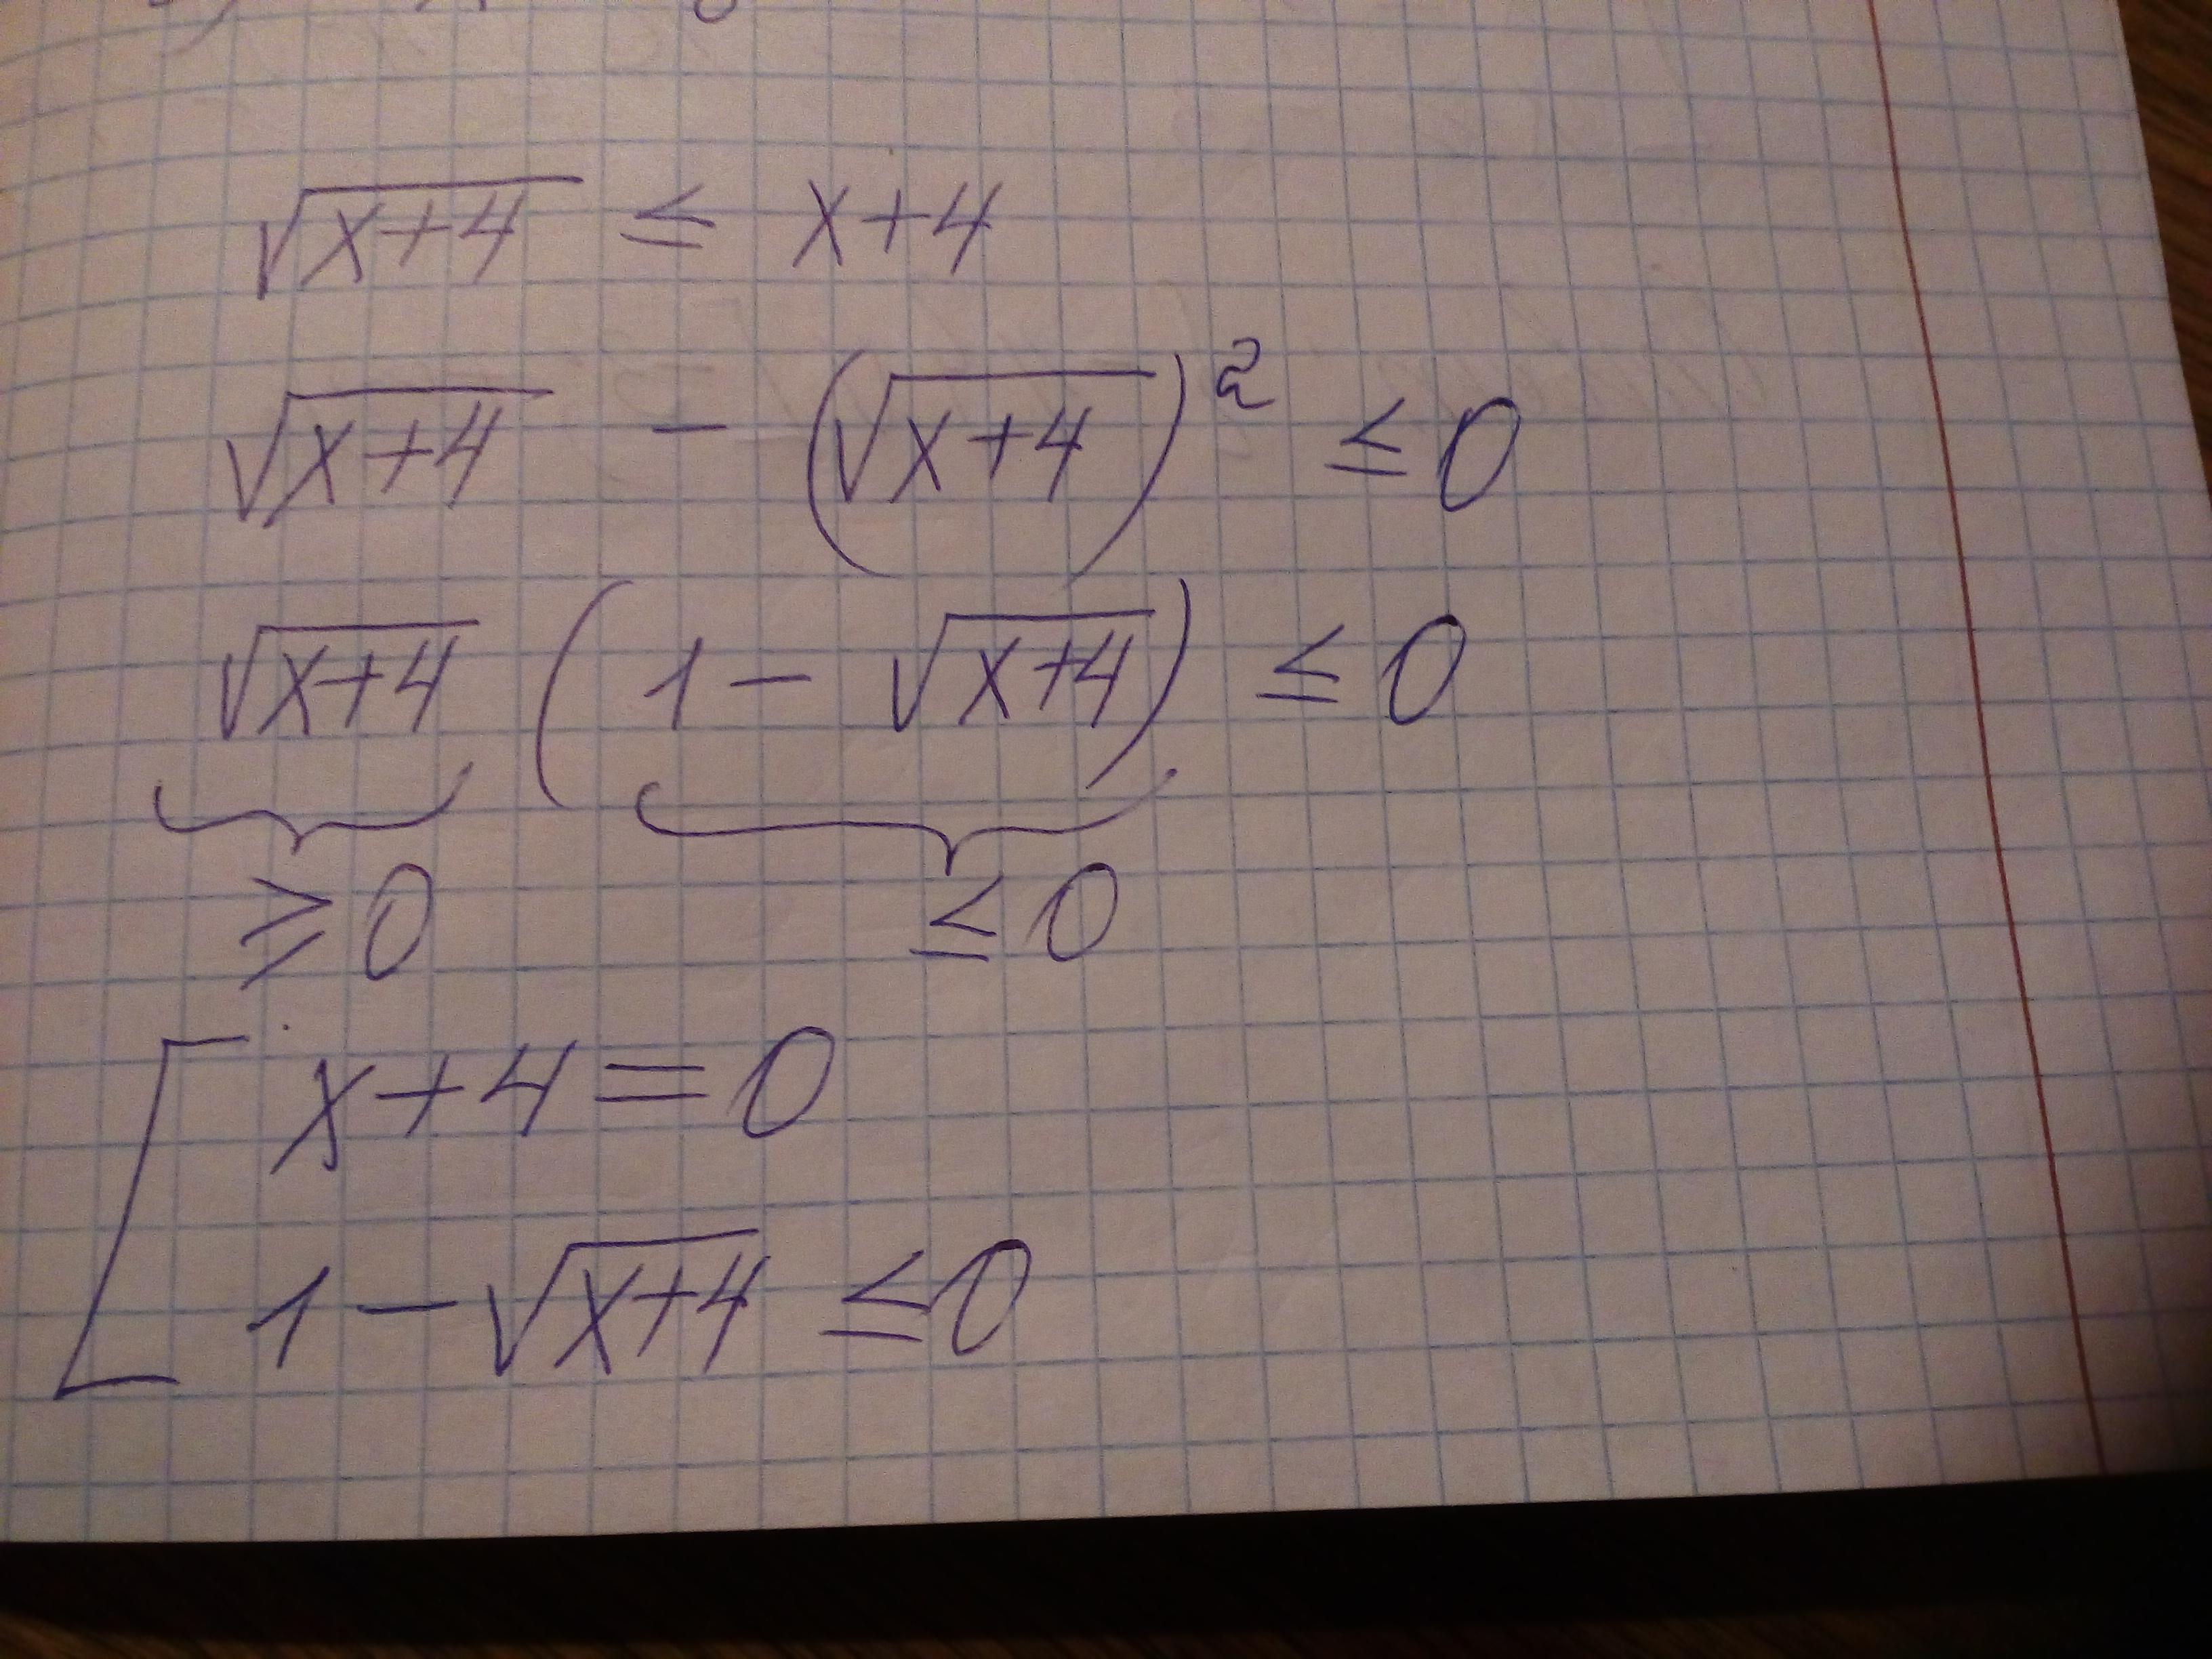 √(x+4) ≤ x+4
√(x+4) - (√(x+4))² ≤ 0
√(x+4) (1 - √(x+4)) ≤ 0
≥ 0 ≤ 0
x+4=0
1-√(x+4) ≤ 0